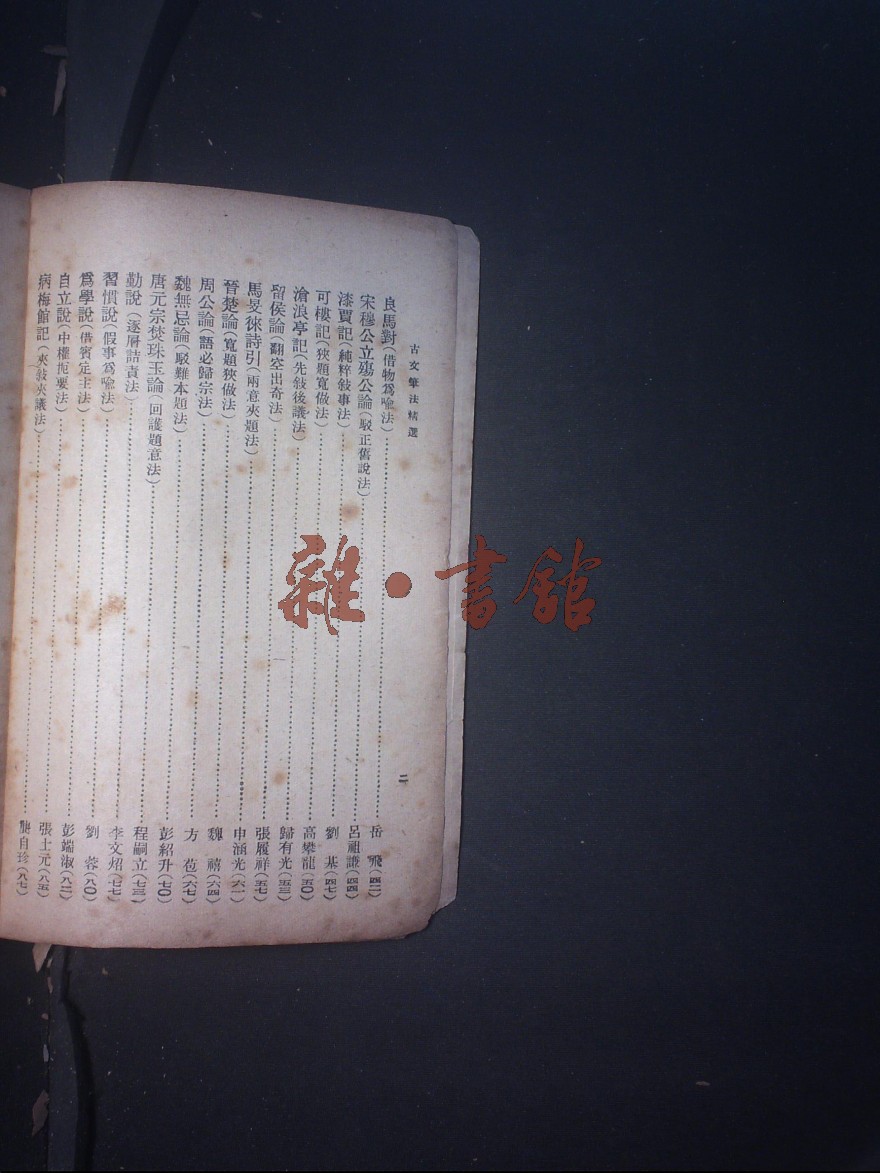 古文筆法精選
二
良馬對(借物爲喩法)……岳飛(四二)
宋穆公立殤公論(駁正舊說法)……呂祖謙(四四)
漆賈記(純粹敍事法)……劉基(四七)
可樓記(狹題寬做法)……高攀龍(五〇)
滄浪亭記(先敍後議法)……歸有光(五三)
留侯論(翻空出奇法)……張履祥(五七)
馬旻徠詩引(兩意夾題法)……申涵光(六一)
晉楚論(寬題狹做法)……魏禧(六四)
周公論(語必歸宗法)……方苞(六七)
魏無忌論(駁難本題法)……彭紹升(七〇)
唐元宗焚珠玉論(回護題意法)……程嗣立(七三)
勤說(逐層詰責法)……李文炤(七七)
習慣說(假事爲喩法)……劉蓉(八〇)
爲學說(借賓定主法)……彭端淑(八二)
自立說(中權扼要法)……張士元(八五)
病梅館記(夾敍夾議法)……龔自珍(八七)
雜·書館